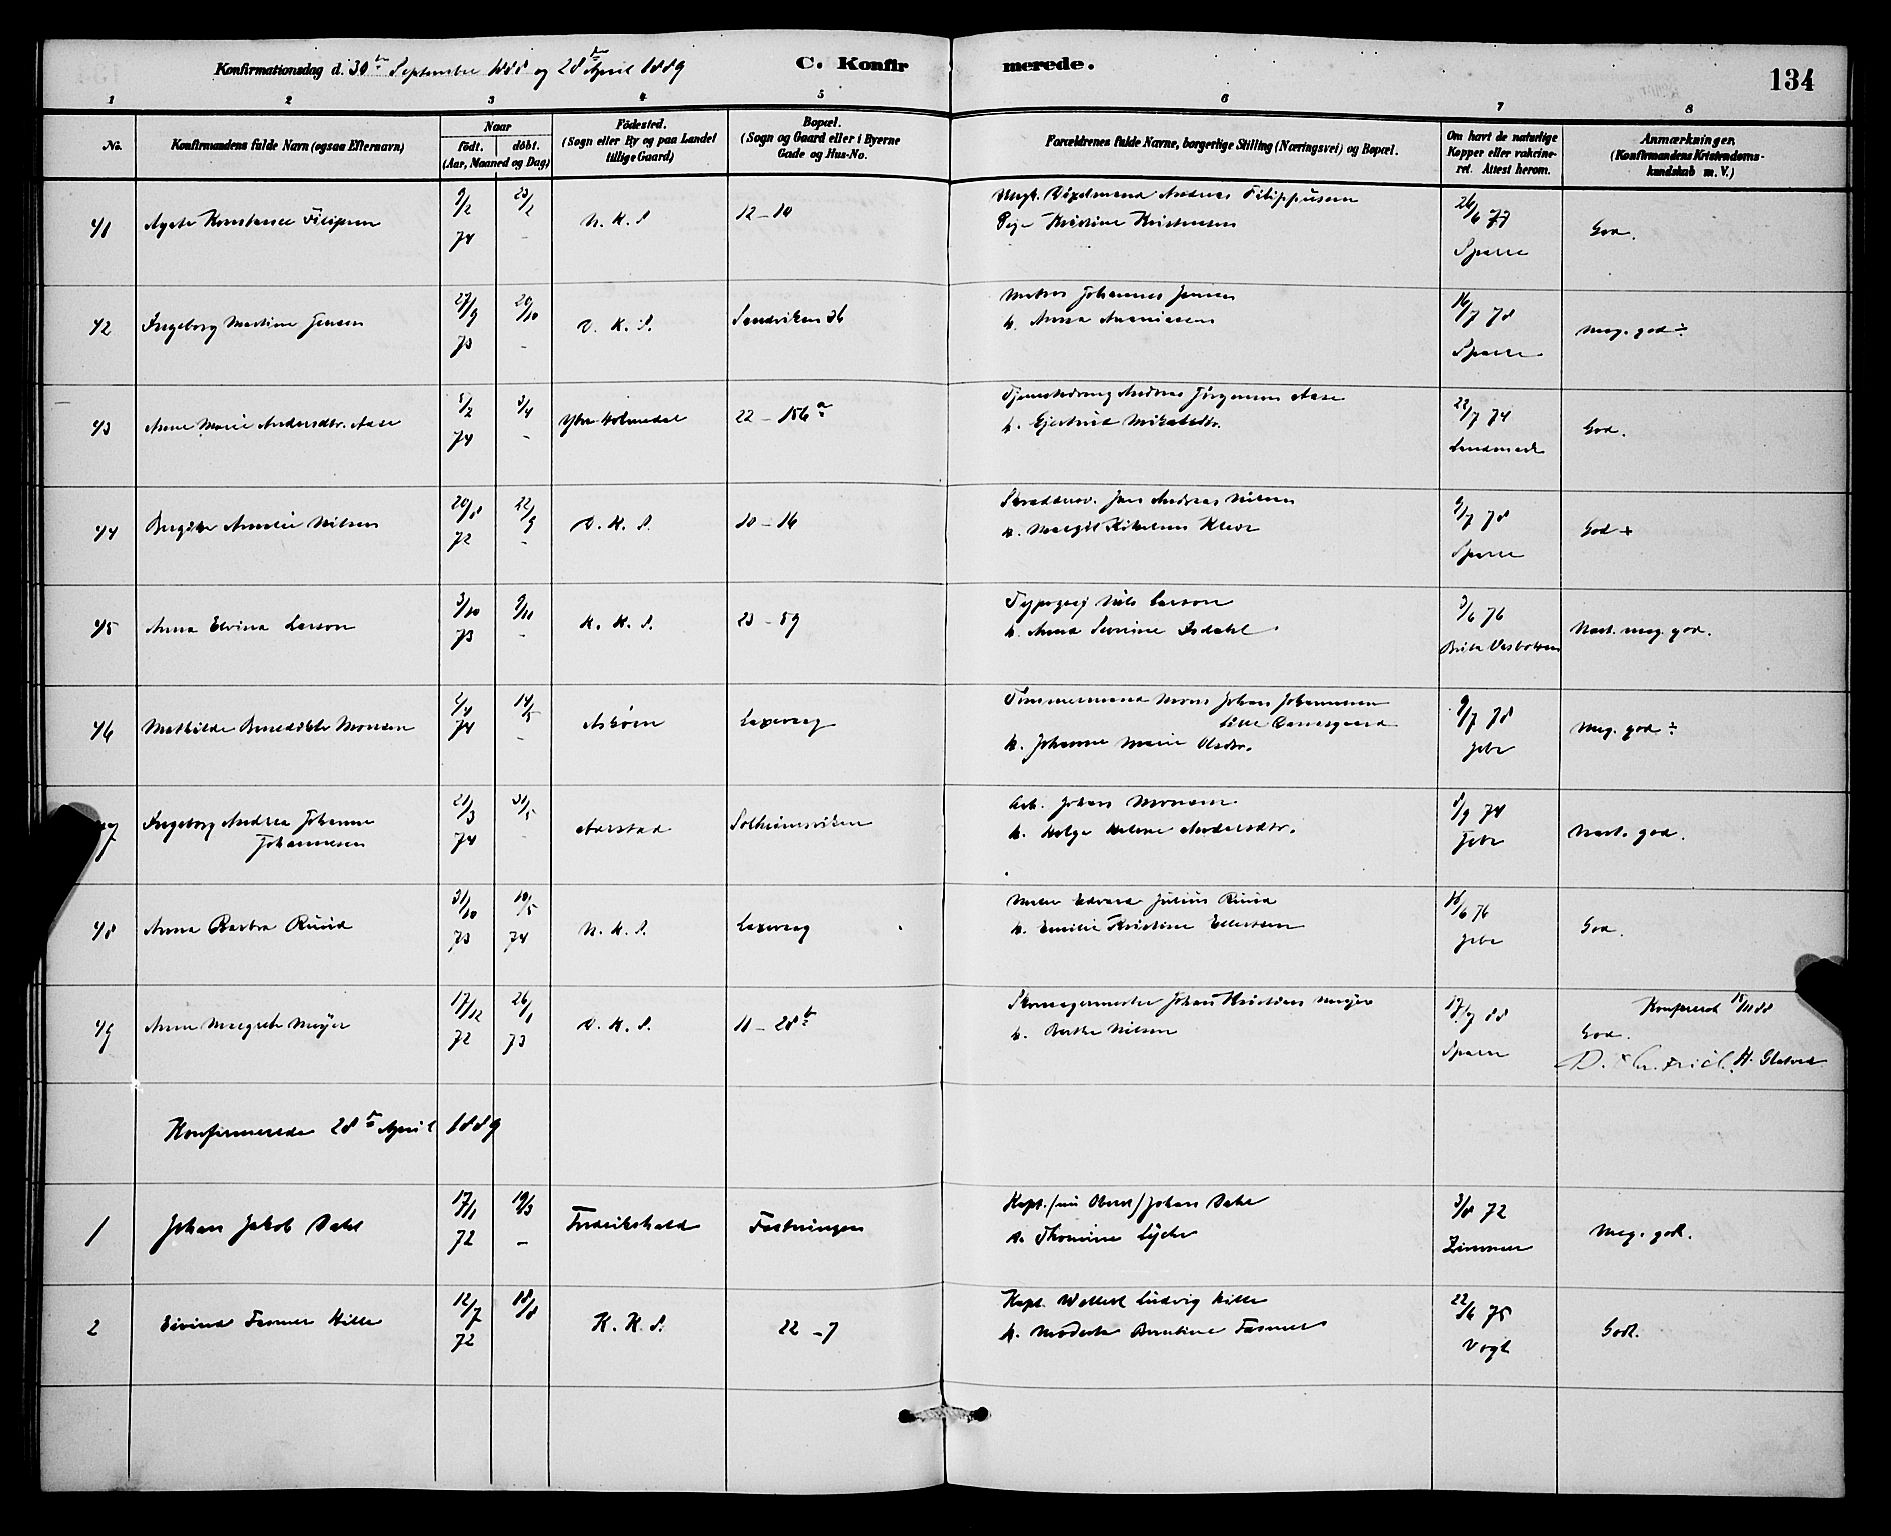 Konfirmationsdag d. 30te September 1888 og 28de April 1889
C. Konfir merede.
134
1 2 3 4 5 6 7 8
No.
Konfirmandens fulde Navn (ogsaa Efternavn)
Naar
födt. döbt.
(Aar, Maaned og Dag)
Födested.
(Sogn eller By og paa Landet
tillige Gaard)
Bopæl.
(Sogn og Gaard eller i Byerne
Gade og Hus-No.
Forældrenes fulde Navne, borgerlige Stilling (Næringsvei) og Bopæl.
Om havt de naturlige
Kopper eller vakcine-
ret. Attest herom.
Anmærkninger.
(Konfirmandens Kristendoms-
kundskab m. V.)
41 Agate Konstance Filipsen 9/2 74 23/2 - N. K. S. 12-10
Andreas Filippusen
Pige Kristine Kristensen
26/6 77
Sparre
God.
42 Ingeborg Martine Jensen 27/9 73 20/10 - D. K. S. Sandviken 36
Matros Johannes Jensen
h. Anna Ananiasen
16/7 78
Sparre
Meg. god ÷
43 Anne Marie Andersdtr. Aase 5/2 74 3/4 - Ytre Holmedal 22-156a
Tjenestedreng Andreas Jörgensen Aase
h. Gjertrud Mikalsdtr.
22/7 74
Landmark
God.
44 Birgitte Amalie Nilsen 20/8 72 22/9 - D. K. S. 10-16
Jens Andreas Nilsen
h.
9/7 78
Sparre
God +
45 Anna Elvina Larson 3/10 73 9/11 - K. K. S. 23-59
Typograf Nils Larson
h. Anna Severine Isdahl
3/6 76
Brita
Næst. meg. god.
46 Mathilde Benedikte Monsen 2/4 74 14/5 - Askøen Laxevaag
Tømmermand Mons Johan Johannesen
Lille Damsgaard
h. Johanne Marie Olsdtr.
9/7 78
Jebe
Meg. god ÷
47 Ingeborg Andrea Johanne
Johannesen
21/3 74 31/5 - Aarstad Solheimsviken
Arb. Johan Monsen
h. Helga Helene Andersdtr.
8/9 74
Jebe
Næst. god.
48 Anna Barbra Ruud 31/10 73 10/5 74 N. K. S. Laxevaag
Edvard Julius Ruud
h. Emilie Kristine Ellertsen
16/6 76
Jebe
God.
49 Anna Margrete Meyer 17/12 72 26/1 73 D. K. S. 11-28b
Skomagermester Johan Kristian Meyer
h. Berthe Nilsen
17/9 88
Sparre
Konfirmeret 18/11 88
God.
Konfirmerede 28de April 1889
1 Johan Jakob Dahl 17/1 72 19/3 - Fredrikshald Fæstningen
Kapt. (nu Oberst) Johan Dahl
h. Thomine Lyche
3/8 72
Zimmer
Meg. god.
2 Eivind Fasmer Hille 12/7 72 18/8 K. K. S. 22-7
Kapt. Wollert Ludvig Hille
h. Modesta Berntine Fasmer
22/6 75
Vogt
God.